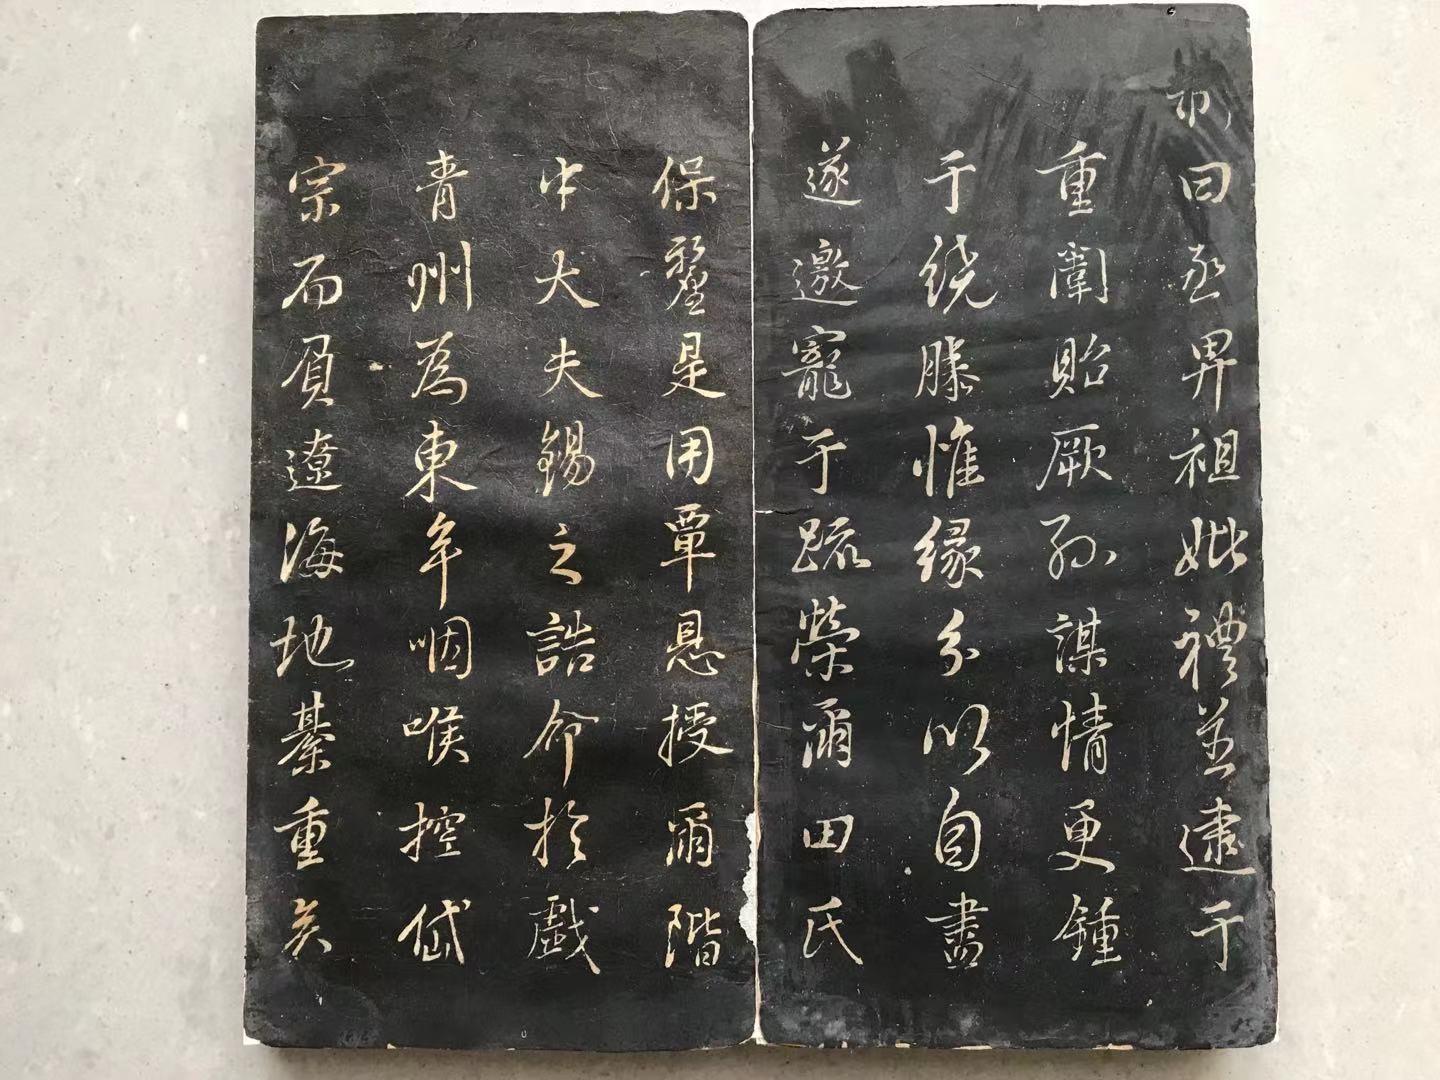 制曰烝畀祖妣禮並逮于
重闈貽厥孫謀情更鍾
于繞膝惟緣分以自盡
遂邀寵于踰榮爾田氏
保釐是用覃恩授爾階
中大夫錫之誥命於戲
青州為東年咽喉控岱
宗而負遼海地綦重矣